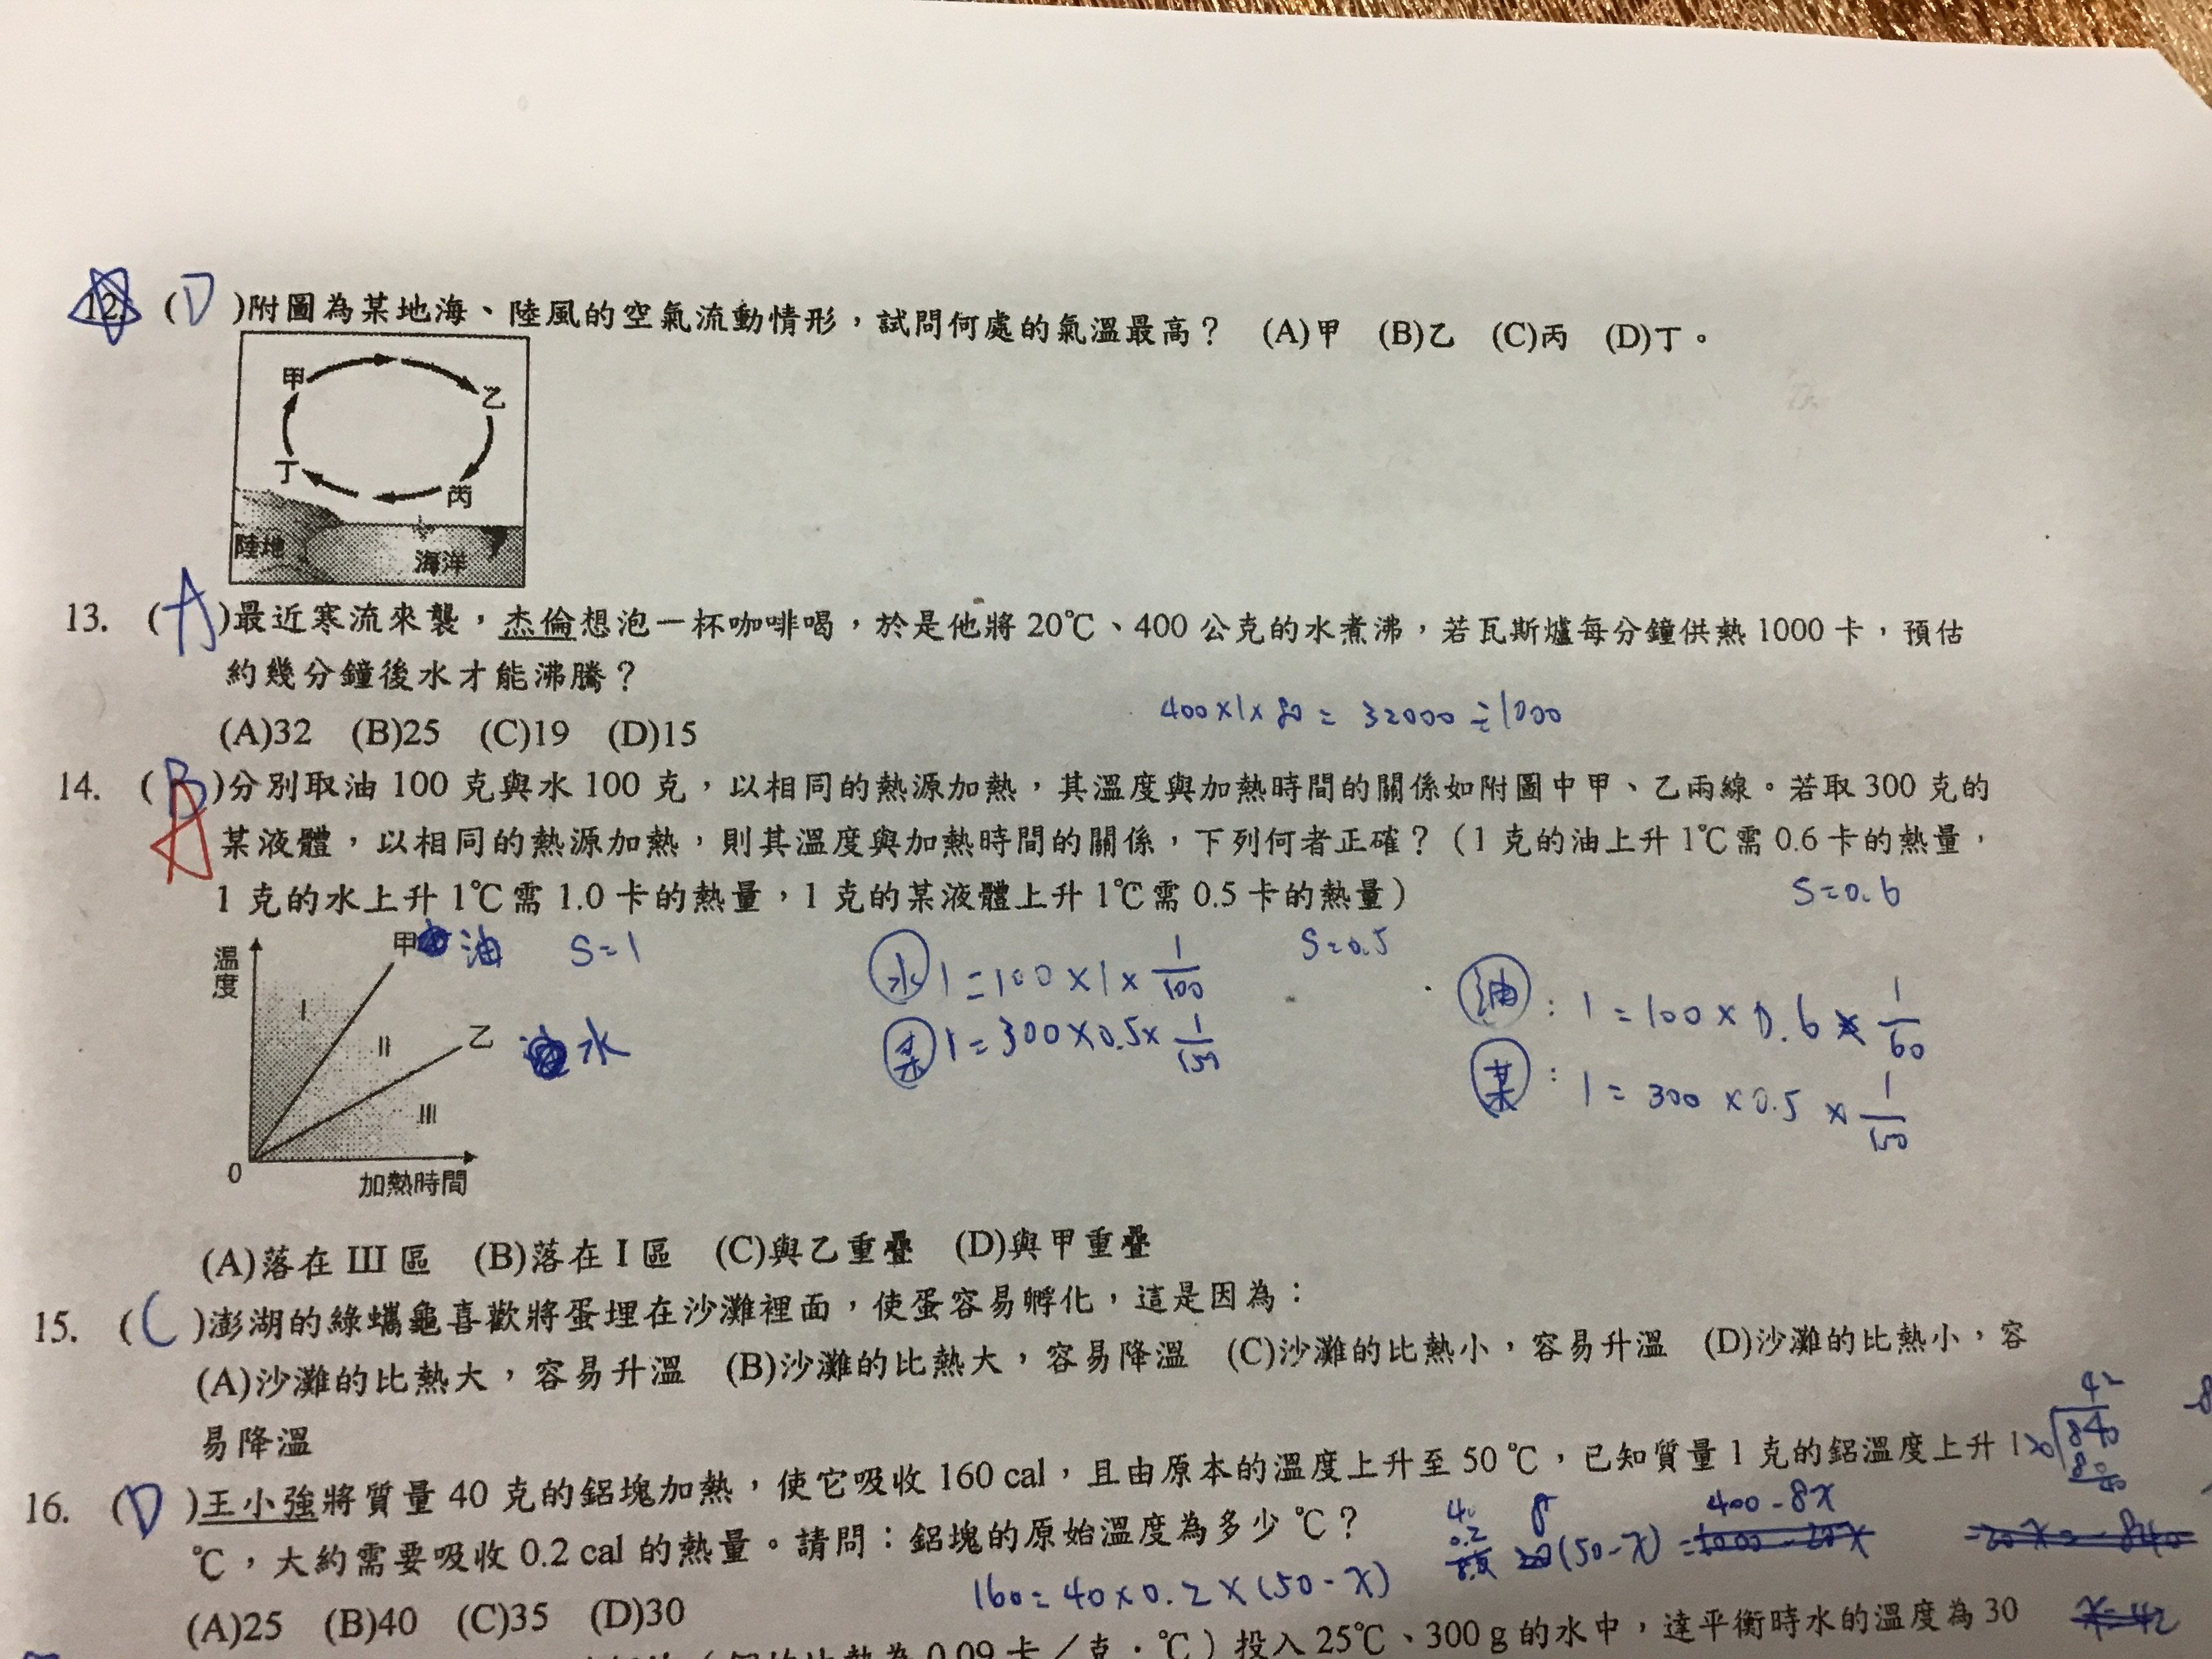 12. (D)附圖為某地海、陸風的空氣流動情形，試問何處的氣溫最高？ (A)甲 (B)乙 (C)丙 (D)丁。
甲
乙
丁
丙
陸地
海洋
13. (A)最近寒流來襲，杰倫想泡一杯咖啡喝，於是他將20℃、400公克的水煮沸，若瓦斯爐每分鐘供熱1000卡，預估
約幾分鐘後水才能沸騰？
400×1×80=32000÷1000
(A)32 (B)25 (C)19 (D)15
14. (B)分別取油100克與水100克，以相同的熱源加熱，其溫度與加熱時間的關係如附圖中甲、乙兩線。若取300克的
A
某液體，以相同的熱源加熱，則其溫度與加熱時間的關係，下列何者正確？（1克的油上升1℃需0.6卡的熱量，
1克的水上升1℃需1.0卡的熱量，1克的某液體上升1℃需0.5卡的熱量）
S=0.6
溫度
甲 油 S=1
水 1=100×1×1/100
S=0.5
油：1=100×0.6×1/60
I
II
乙 水
某 1=300×0.5×1/150
某：1=300×0.5×1/150
III
0
加熱時間
(A)落在III區 (B)落在I區 (C)與乙重疊 (D)與甲重疊
15. (C)澎湖的綠蠵龜喜歡將蛋埋在沙灘裡面，使蛋容易孵化，這是因為：
(A)沙灘的比熱大，容易升溫 (B)沙灘的比熱大，容易降溫 (C)沙灘的比熱小，容易升溫 (D)沙灘的比熱小，容
易降溫
42
840
16. (D)王小強將質量40克的鋁塊加熱，使它吸收160 cal，且由原本的溫度上升至50℃，已知質量1克的鋁溫度上升1
℃，大約需要吸收0.2 cal的熱量。請問：鋁塊的原始溫度為多少℃？
400-8x
40
0.2
8
(50-x)=
160=40×0.2×(50-x)
(A)25 (B)40 (C)35 (D)30
0.09卡／克．℃）投入25℃、300g的水中，達平衡時水的溫度為30
x=42